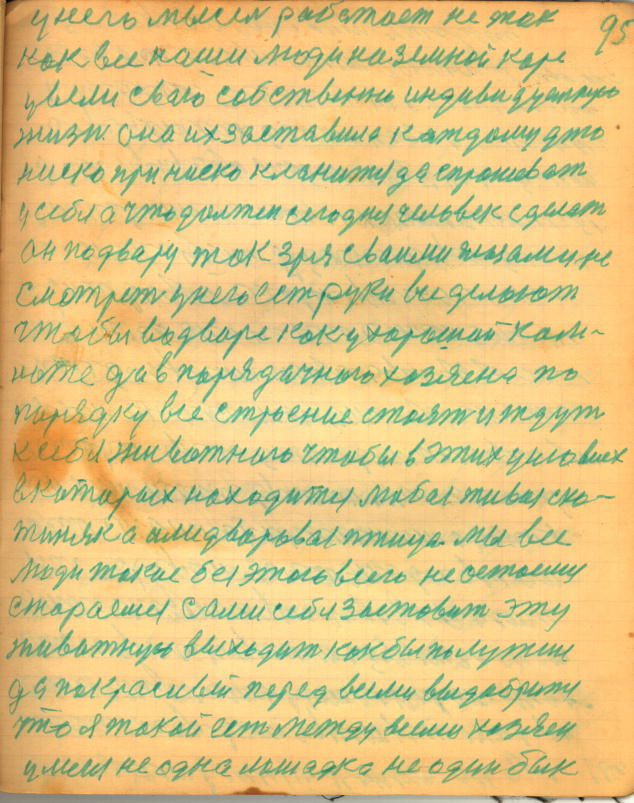 95
у него мысля работает не так
как все наши люди на земной коре
у вели сваго собственно индивидуалную
жизн она их заставила каждому дню
ниско при ниско кланится да спрашиват
у себя а что должен сегодня человек сделат
он по двару так зря сваими глазами не
смотрет у него ест руки все делают
чтобы во дваре как у харошай ком-
нате да в порядачного хозяена по
порядку все строение стоят и ждут
к себя животного чтобы в этих условиях
в каторых находится любая живая ско-
тиняка или дваровая птица мы все
люди такие без этого всего не остаемся
стараемся сами себя заставит эту
животную выходит как бы получши
да покрасивей перед всеми
что я такой ест между всеми хозяен
у меня не одна лошадка не один бык